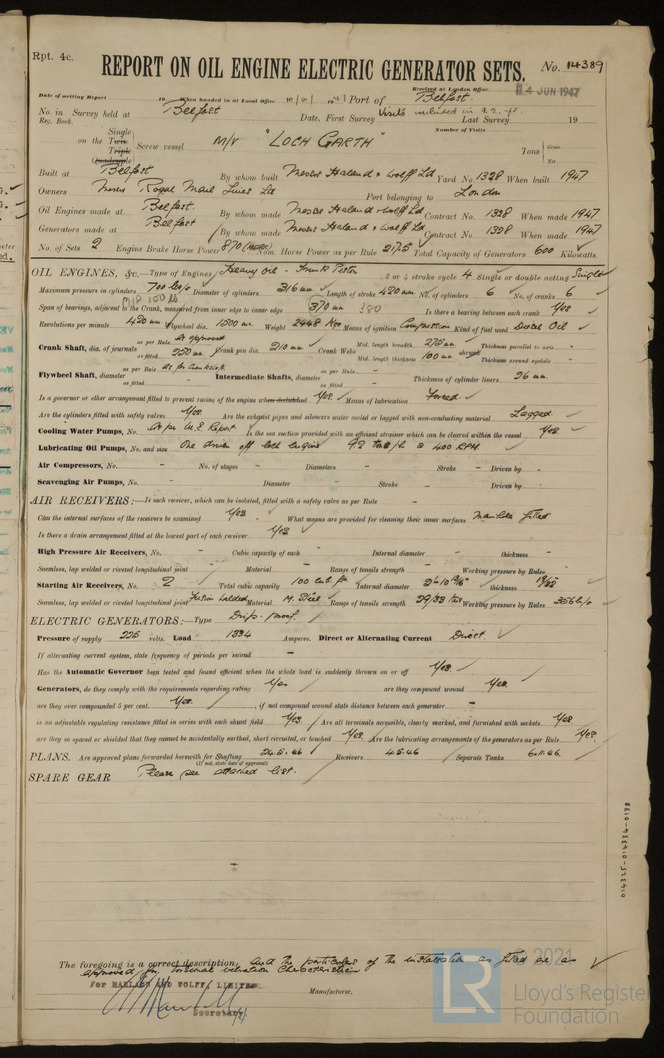 Rpt. 4c.
REPORT ON OIL ENGINE ELECTRIC GENERATOR SETS. No. 14389
Received at London Office 4 JUN 1947
Date of writing Report 19 When handed in at Local Office 10/6/ 1947 Port of Belfast.
No. in Reg. Book. Survey held at Belfast Date, First Survey Visits included in Last Survey 19
Number of Visits
on the Single Twin Triple Quadruple Screw vessel M/V "LOCH GARTH" Tons Gross Net
Built at Belfast By whom built Messrs Harland & Wolff Ld Yard No. 1328 When built 1947
Owners Messrs Royal Mail Lines Ld Port belonging to London
Oil Engines made at Belfast By whom made Messrs Harland & Wolff Ld Contract No. 1328 When made 1947
Generators made at Belfast By whom made Messrs Harland & Wolff Ld Contract No. 1328 When made 1947
No. of Sets 2 Engine Brake Horse Power 870 Nom. Horse Power as per Rule 217.5 Total Capacity of Generators 600 Kilowatts.
OIL ENGINES, &c.—Type of Engines Heavy Oil - Trunk Piston 2 or 4 stroke cycle 4 Single or double acting Single
Maximum pressure in cylinders 700 lbs/□" Diameter of cylinders 316 mm Length of stroke 420 mm No. of cylinders 6 No. of cranks 6
M.I.P. 100 lb
Span of bearings, adjacent to the Crank, measured from inner edge to inner edge 370 mm 380 Is there a bearing between each crank Yes
Revolutions per minute 420 Flywheel dia. 1500 mm Weight 2448 Kgs Means of ignition Compression Kind of fuel used Diesel Oil
Crank Shaft, dia. of journals as per Rule As approved as fitted 230 mm Crank pin dia. 210 mm Crank Webs Mid. length breadth 275 mm Mid. length thickness 100 mm shrunk Thickness parallel to axis - Thickness around eyehole -
Flywheel Shaft, diameter as per Rule As for Crankshaft as fitted Intermediate Shafts, diameter as per Rule - as fitted - Thickness of cylinder liners 26 mm
Is a governor or other arrangement fitted to prevent racing of the engine when declutched Yes Means of lubrication Forced
Are the cylinders fitted with safety valves Yes Are the exhaust pipes and silencers water cooled or lagged with non-conducting material Lagged
Cooling Water Pumps, No. As per M.E. Report Is the sea suction provided with an efficient strainer which can be cleared within the vessel Yes
Lubricating Oil Pumps, No. and size One driven off each engine 400 RPM.
Air Compressors, No. - No. of stages - Diameters - Stroke - Driven by -
Scavenging Air Pumps, No. - Diameter - Stroke - Driven by -
AIR RECEIVERS:—Is each receiver, which can be isolated, fitted with a safety valve as per Rule -
Can the internal surfaces of the receivers be examined Yes What means are provided for cleaning their inner surfaces Manhole fitted
Is there a drain arrangement fitted at the lowest part of each receiver Yes
High Pressure Air Receivers, No. - Cubic capacity of each - Internal diameter - thickness -
Seamless, lap welded or riveted longitudinal joint - Material - Range of tensile strength - Working pressure by Rules -
Starting Air Receivers, No. 2 Total cubic capacity 100 cub ft Internal diameter thickness
Seamless, lap welded or riveted longitudinal joint Fusion Welded Material M. Steel Range of tensile strength 29/33 tons Working pressure by Rules 356 lb/□"
ELECTRIC GENERATORS:—Type Drip-proof.
Pressure of supply 225 volts. Load 1334 Amperes. Direct or Alternating Current Direct
If alternating current system, state frequency of periods per second -
Has the Automatic Governor been tested and found efficient when the whole load is suddenly thrown on or off Yes
Generators, do they comply with the requirements regarding rating Yes are they compound wound Yes
are they over compounded 5 per cent. Yes, if not compound wound state distance between each generator -
is an adjustable regulating resistance fitted in series with each shunt field Yes Are all terminals accessible, clearly marked, and furnished with sockets Yes
are they so spaced or shielded that they cannot be accidentally earthed, short circuited, or touched Yes Are the lubricating arrangements of the generators as per Rule Yes
PLANS. Are approved plans forwarded herewith for Shafting 24.5.46 Receivers 4.5.46 Separate Tanks 6.11.46
(If not, state date of approval)
SPARE GEAR Please see attached list.
The foregoing is a correct description, and the particulars of the installation as fitted are as
approved for torsional vibration characteristics
For HARLAND AND WOLFF, LIMITED
Manufacturer.
Secretary
© 2021
LR
Lloyd's Register
Foundation